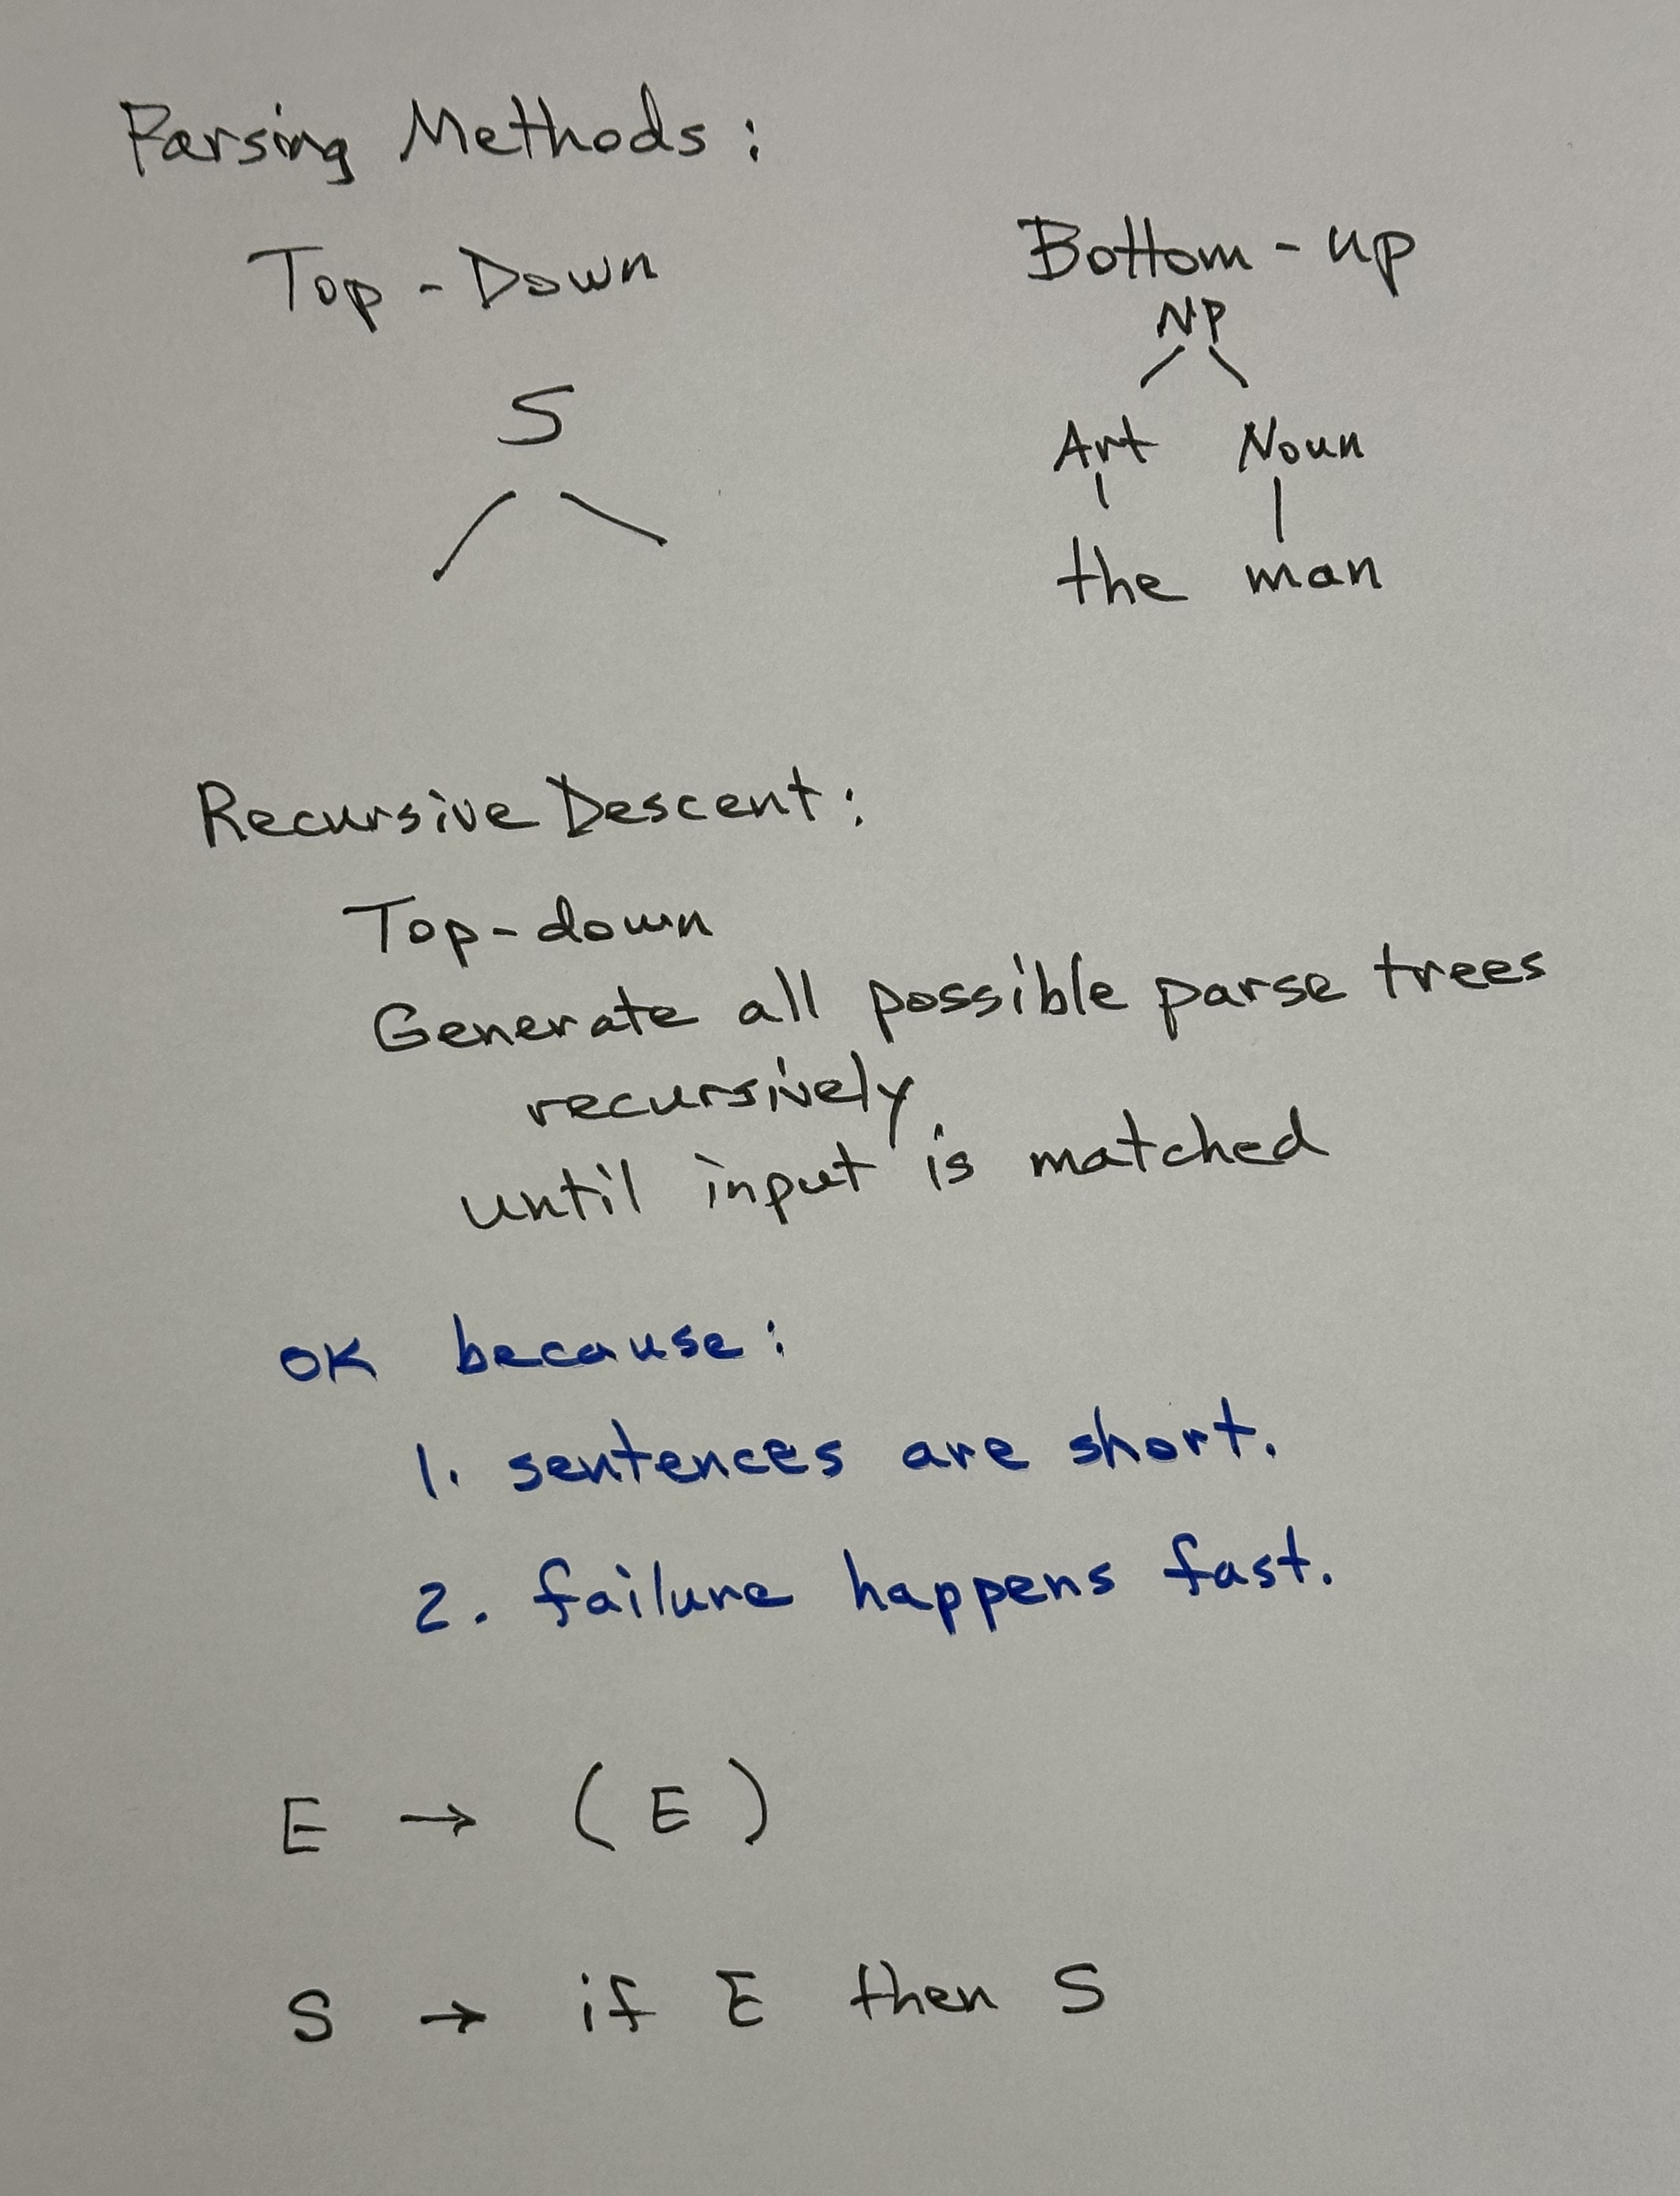 Parsing Methods:
Top-Down
S
Bottom-up
NP
Art Noun
the man
Recursive Descent:
Top-down
Generate all possible parse trees
recursively
until input is matched
OK because:
1. sentences are short.
2. failure happens fast.
E → (E)
S → if E then S